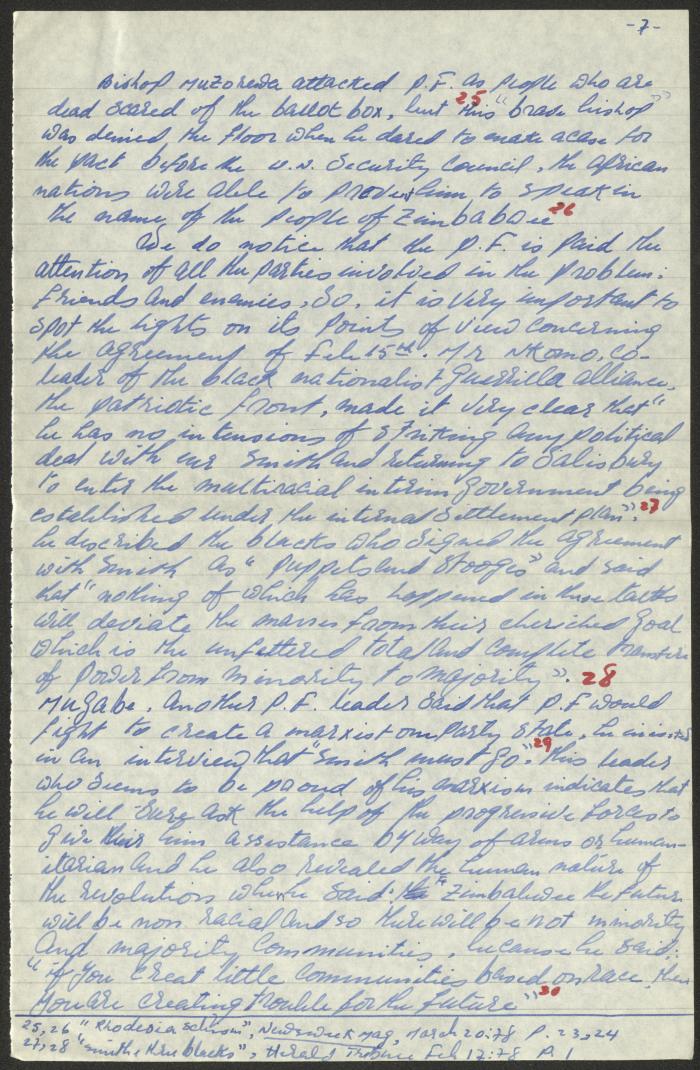 -7-
Bishop Muzorewa attacked P.F. as people who are
dead scared of the ballot box, 25 but this "brave bishop"
was denied the floor when he dared to make a case for
the pact before the U.N. Security Council, the african
nations were able to prevent him to speak in
the name of the People of Zimbabwe 26
We do notice that the P.F. is paid the
attention of all the parties involved in the problem:
friends and enemies, so, it is very important to
spot the lights on its points of view concerning
the agreement of Feb 15th. Mr Nkomo, co-
leader of the black nationalist Guerrilla alliance,
the patriotic front, made it very clear that "
he has no intensions of striking any political
deal with mr Smith and returning to Salisbury
to enter the multiracial interim government being
established under the internal settlement plan". 27
he described the blacks who signed the agreement
with Smith as "puppets and stooges" and said
that "nothing of which has happened in these talks
will deviate the masses from their cherished goal
which is the unfettered total and complete transfere
of power from minority to majority". 28
Mugabe, another P.F. leader said that P.F would
fight to create a marxist one party state, he insisted
in an interview that "Smith must go". 29 this leader
who seems to be proud of his marxism indicates that
he will sure ask the help of the progressive forces to
give him assistance by way of arms or human-
itarian and he also revealed the human nature of
the revolutions when he said: "Zimbabwee the future
will be non racial and so there will be not minority
and majority communities, because he said:
"if you creat little communities based on race, then
you are creating trouble for the future" 30
25, 26 "Rhodesia schism", Newsweek Mag, March 20:78 P. 23, 24
27, 28 "Smith & three blacks", Herald Tribune Feb 17:78 P. 1